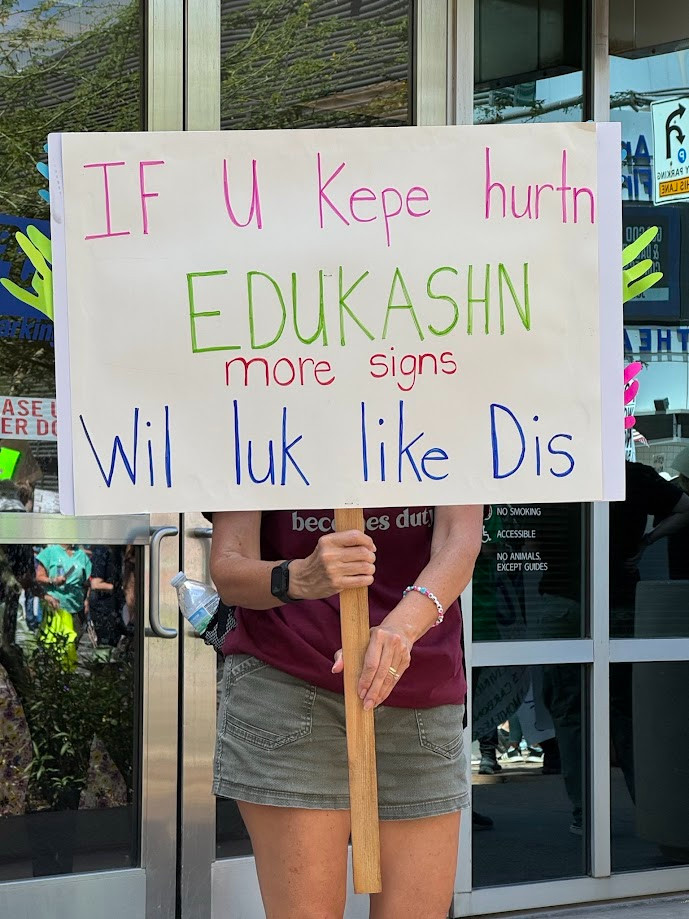 IF U Kepe hurtn
EDUKASHN
more signs
Wil luk like Dis
becomes duty
NO SMOKING
ACCESSIBLE
NO ANIMALS,
EXCEPT GUIDES